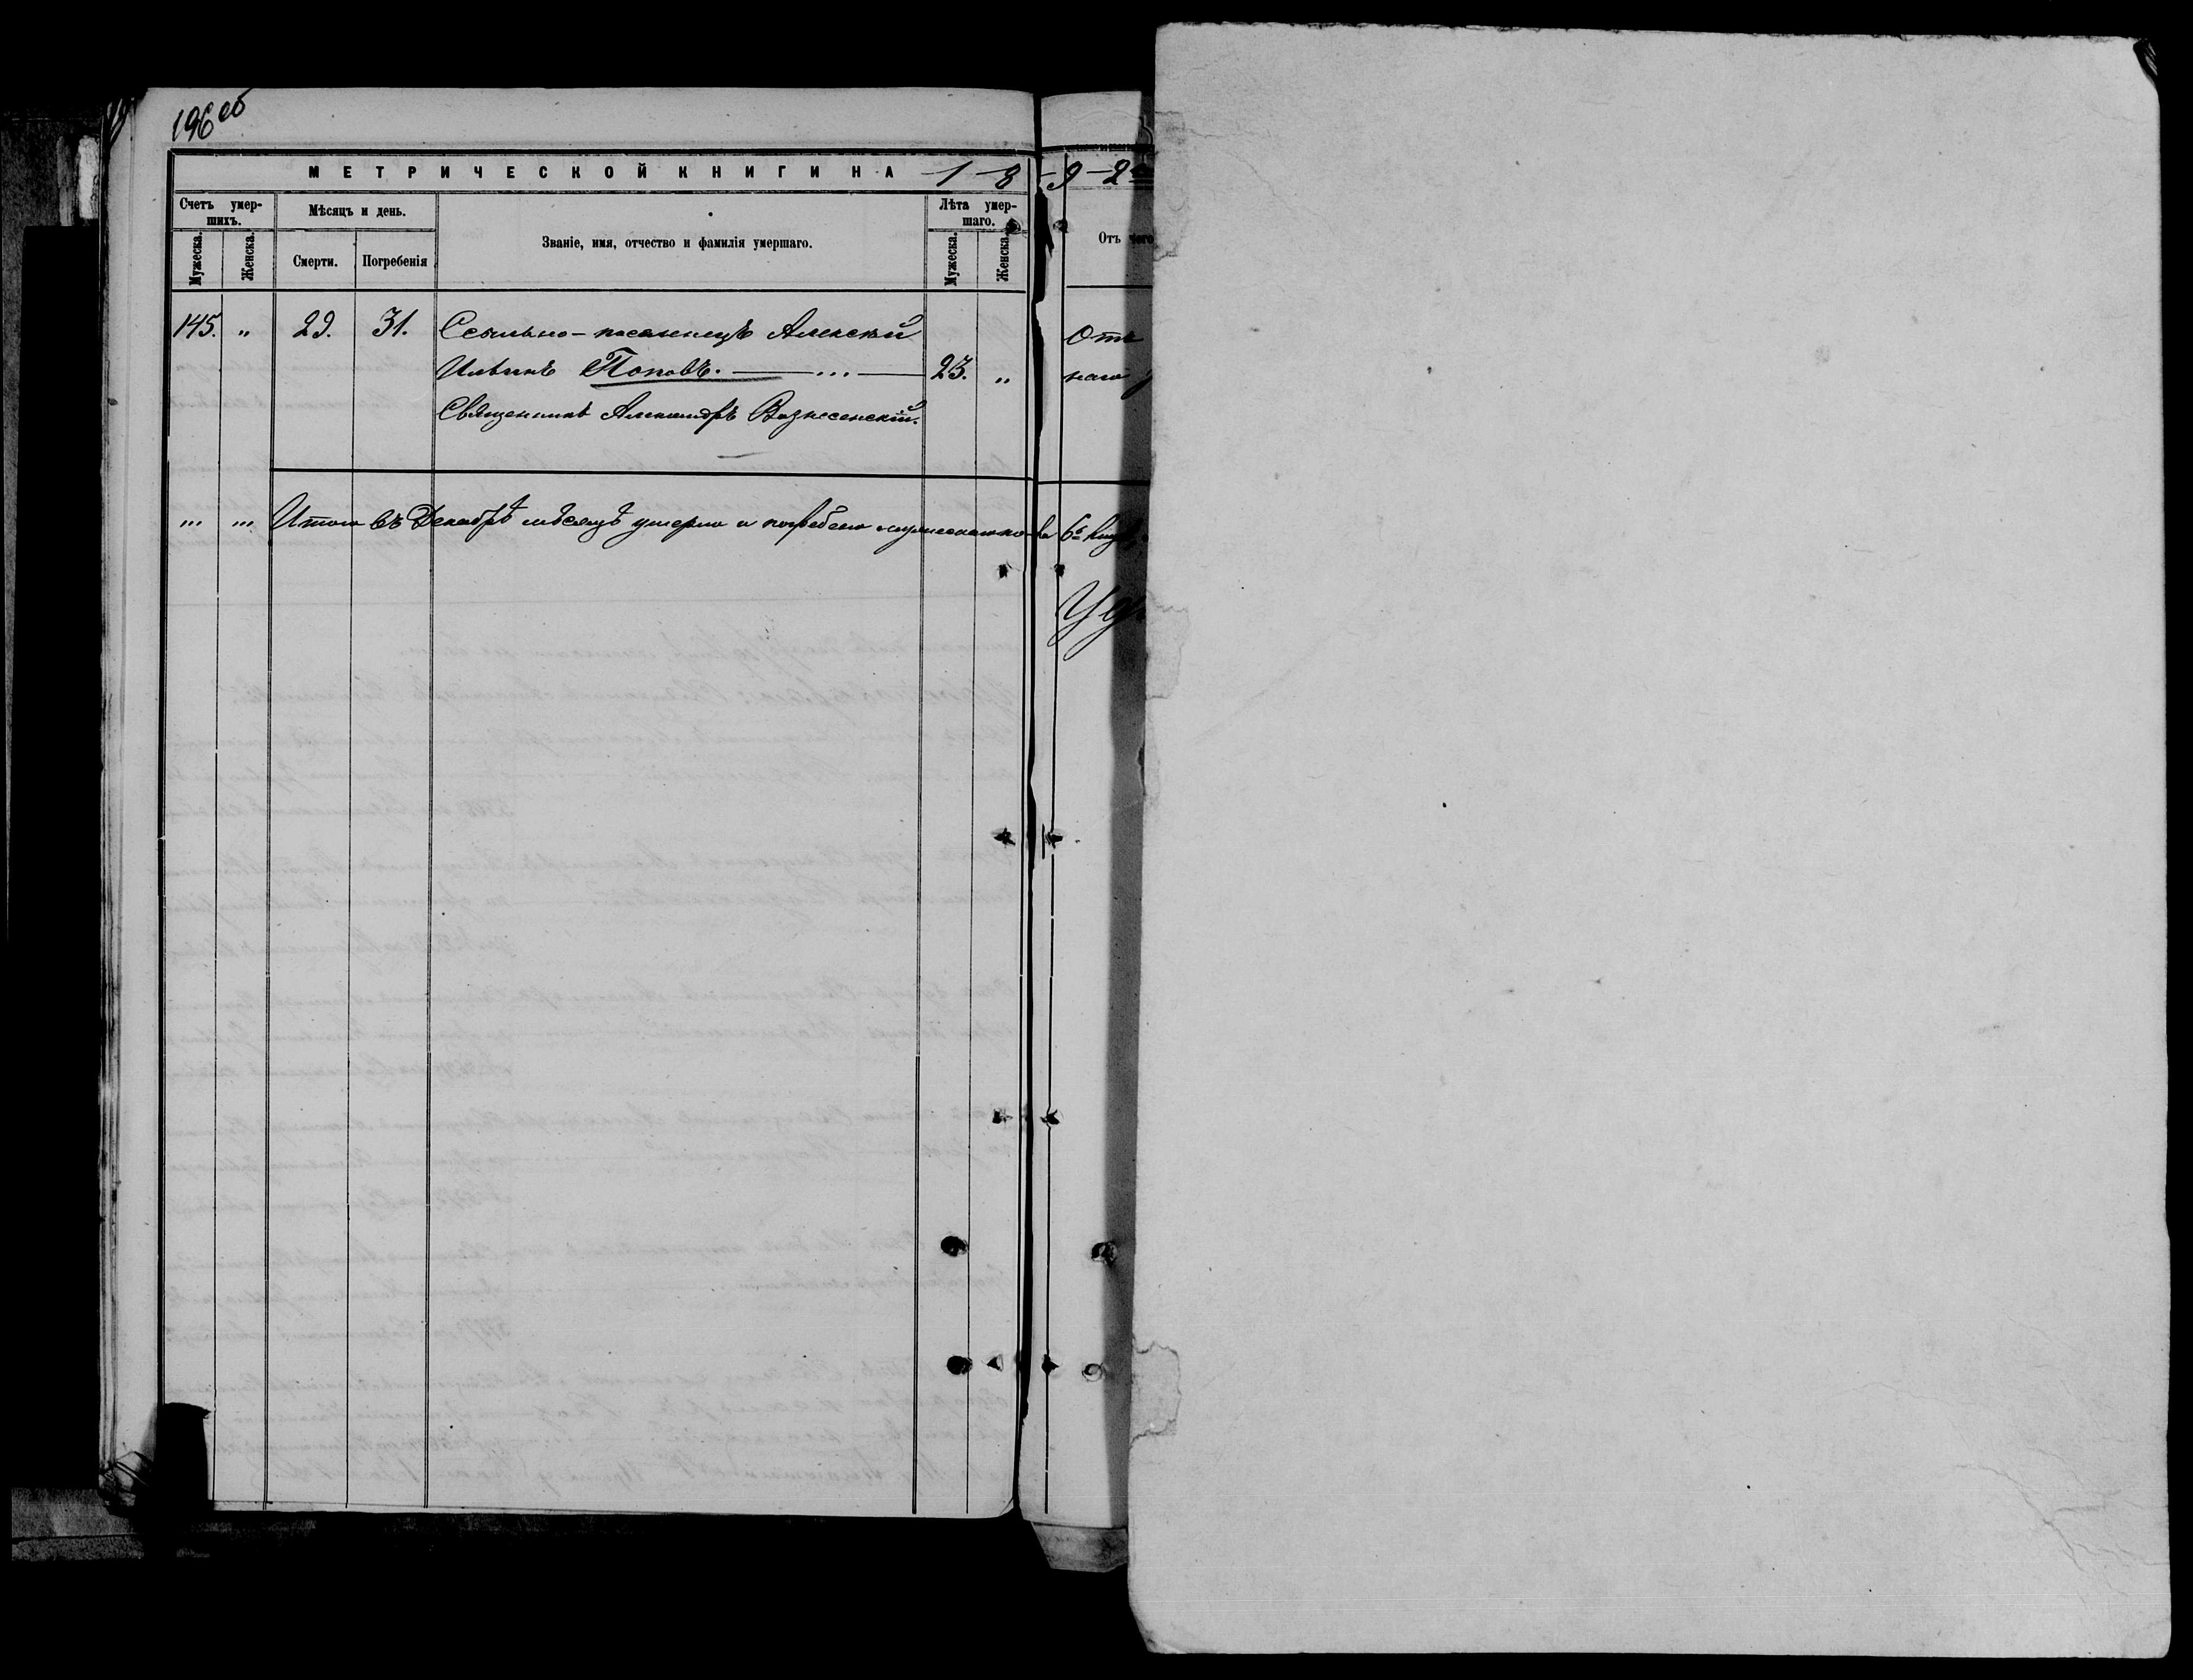 196 об
МЕТРИЧЕСКОЙ КНИГИ НА 1 8 9 2
Счетъ умер-
шихъ.
Мужеска.
Женска.
Мѣсяцъ и день.
Смерти.
Погребенія
Званіе, имя, отчество и фамилія умершаго.
Лѣта умер-
шаго.
Мужеска.
Женска.
Отъ чего
145. „ 29. 31. Ссыльно-поселенецъ Алексѣй Отъ
Ильинъ Поповъ. 23. „
Священникъ Александръ Вознесенскій.
Итого въ Декабрѣ мѣсяцѣ умерло и погребено мужеска по